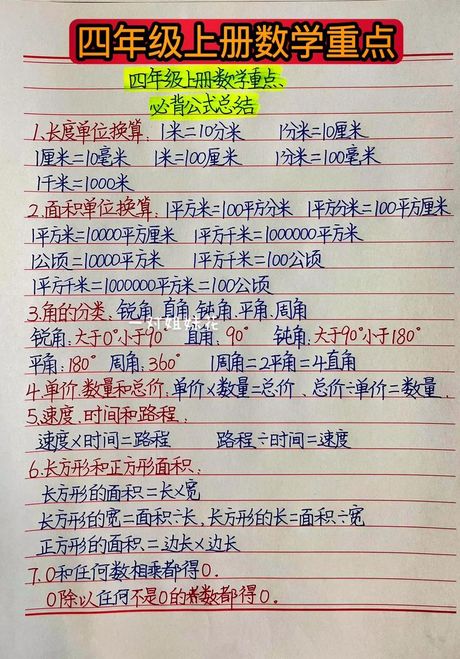 四年级上册数学重点
四年级上册数学重点、
必背公式总结
1.长度单位换算：1米=10分米 1分米=10厘米
1厘米=10毫米 1米=100厘米 1分米=100毫米
1千米=1000米
2.面积单位换算：1平方米=100平方分米 1平方分米=100平方厘米
1平方米=10000平方厘米 1平方千米=1000000平方米
1公顷=10000平方米 1平方千米=100公顷
1平方千米=1000000平方米=100公顷
3.角的分类、锐角、直角、钝角、平角、周角
一对姐妹花
锐角：大于0°小于90° 直角：90° 钝角：大于90°小于180°
平角：180° 周角：360° 1周角=2平角=4直角
4.单价、数量和总价：单价×数量=总价、总价÷单价=数量.
5.速度、时间和路程：
速度×时间=路程 路程÷时间=速度
6.长方形和正方形面积：
长方形的面积=长×宽
长方形的宽=面积÷长、长方形的长=面积÷宽
正方形的面积=边长×边长
7.0和任何数相乘都得0.
0除以任何不是0的数都得0.